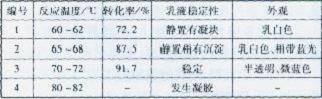 编号 反应温度/℃ 转化率/% 乳液稳定性 外观
1 60~62 72.2 静置有凝块 乳白色
2 65~68 87.5 静置稍有沉淀 乳白色、稍带蓝光
3 70~72 91.7 稳定 半透明、微蓝色
4 80~82 - 发生凝胶 -